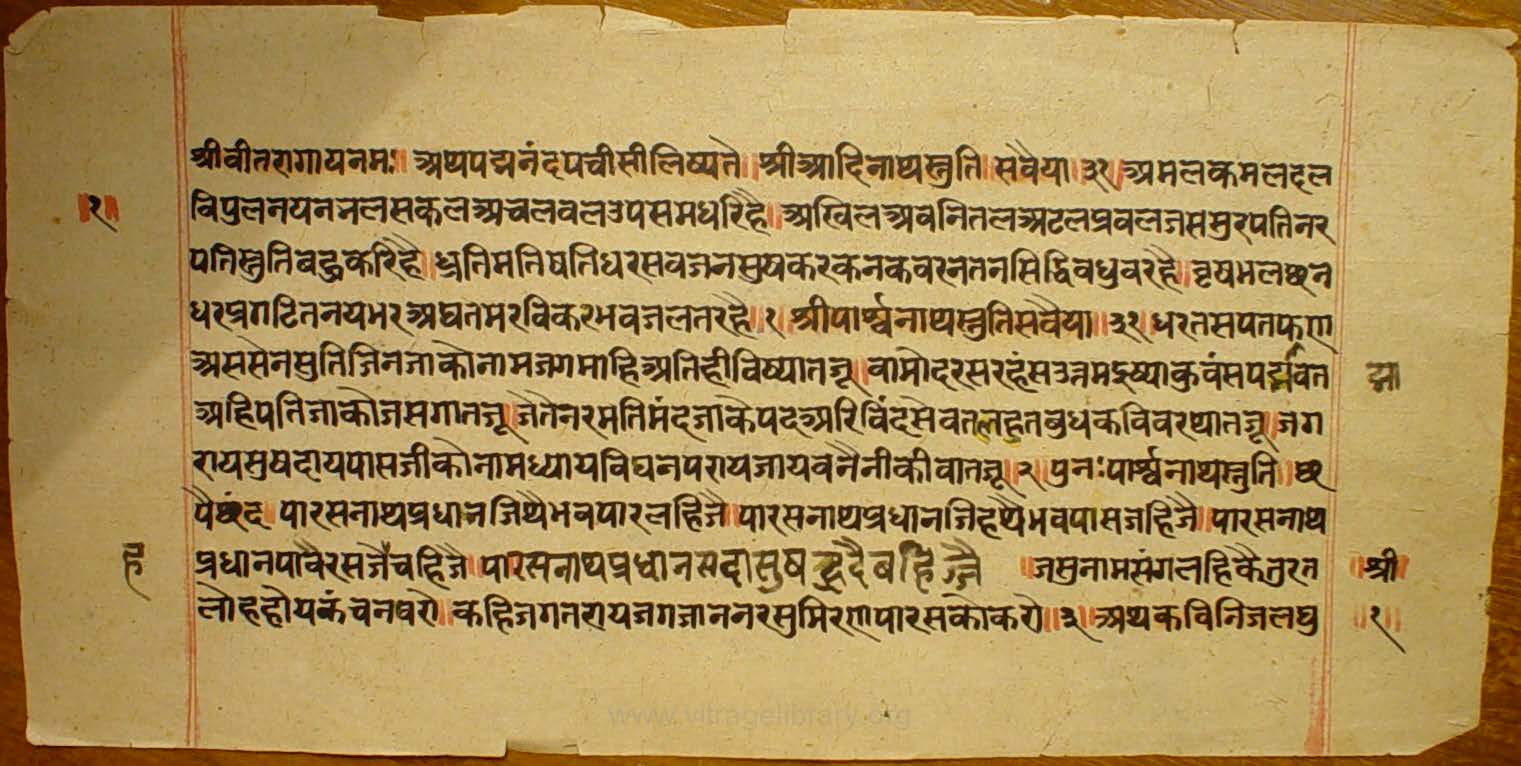 श्रीवीतरागायनमः॥ अथपद्मनंदपचीसीलिष्यते॥ श्रीआदिनाथस्तुति॥ सवैया॥३१॥ अमलकमलदल
॥१॥ विपुलनयनभलसकलअचलवलउपसमधरिहै॥ अखिलअवनितलअटलप्रवलजससुरपतिनर
पतिस्तुतिबहुकरिहै॥ धृतिमतिषतिधरसवजनसुषकरकनकवरनतनसिद्धिवधुवरहै॥ वृषभलछन
धरप्रगटितनयभरअघतमरविकरभवजलतरहै॥१॥ श्रीपार्श्वनाथस्तुतिसवैया॥३१॥ धरतसपतफण
अससेनसुतिजिनजाकोनामजगमाहिअतिहीविष्यातजू॥ वामोदरसरहंसउत्तमइष्याकुवंसपद्मवत द्मा
अहिपतिजाकौजसगातजू॥ जैतेनरमतिमंदजाकैपदअरिविंदसेवतलहुतबुधकविवरथातजू॥ जग
रायसुषदायपासजीकौनामध्यायविघनपरायजायवनैनीकीवातजू॥२॥ पुनःपार्श्वनाथस्तुति॥ छ
पैछंद॥ पारसनाथप्रधानजिथैभवपारलहिजै॥ पारसनाथप्रधानजिहथैभवपासजहिजै॥ पारसनाथ
ह प्रधानपावैरसजैचहिजै॥ पारसनाथप्रधानसदासुष बहिजै ॥ जसुनामसंगलहिकैतुरत ॥श्री
लोहहोयकंचनषरो॥ कहिजगतरायजगजाननरसुमिरणपारसकोकरो॥३॥ अथकविनिजलघु ॥१॥
www.vitragelibrary.org